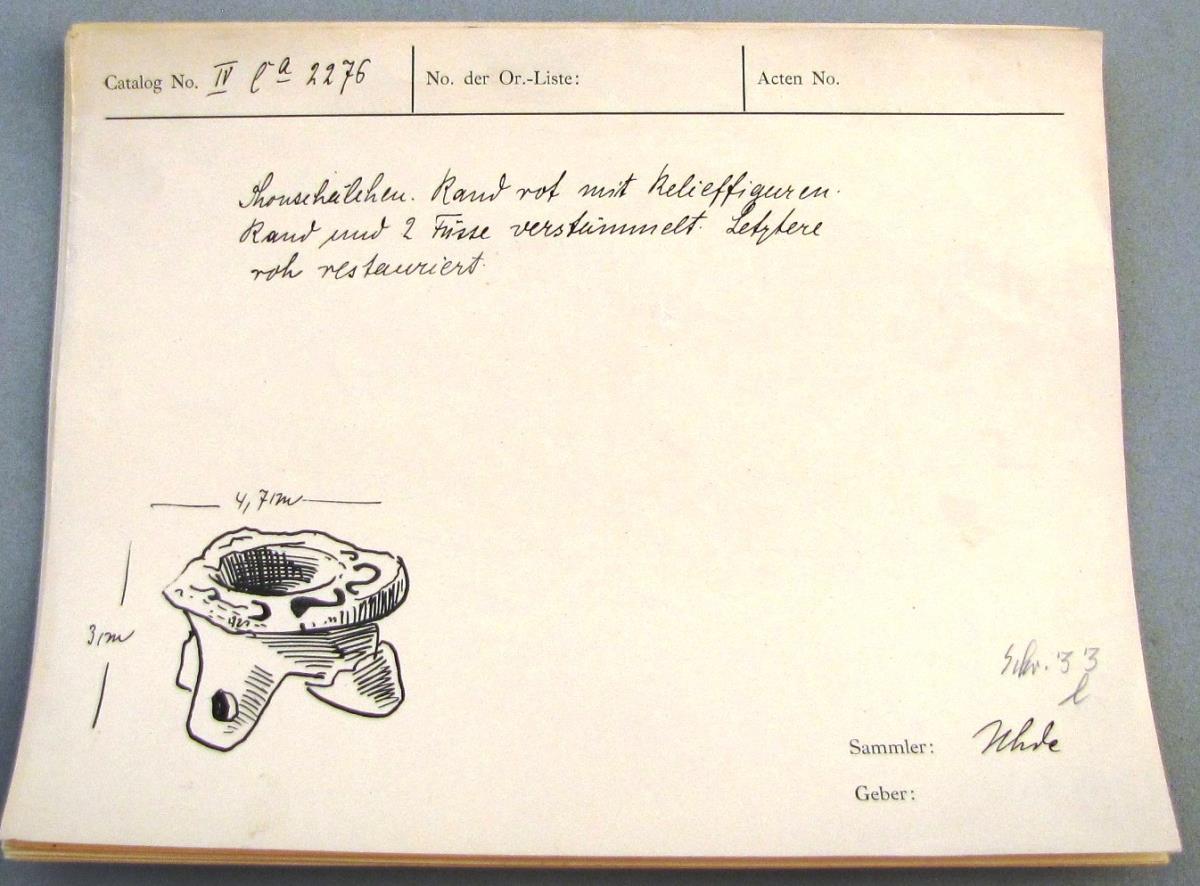 Catalog No. IV Ca 2276 No. der Or.-Liste: Acten No.
Thonschälchen. Rand rot mit Relieffiguren.
Rand und 2 Füsse verstümmelt. Letztere
roh restauriert.
4,7 cm
3 cm
Schr. 33
l
Sammler: Uhde
Geber: